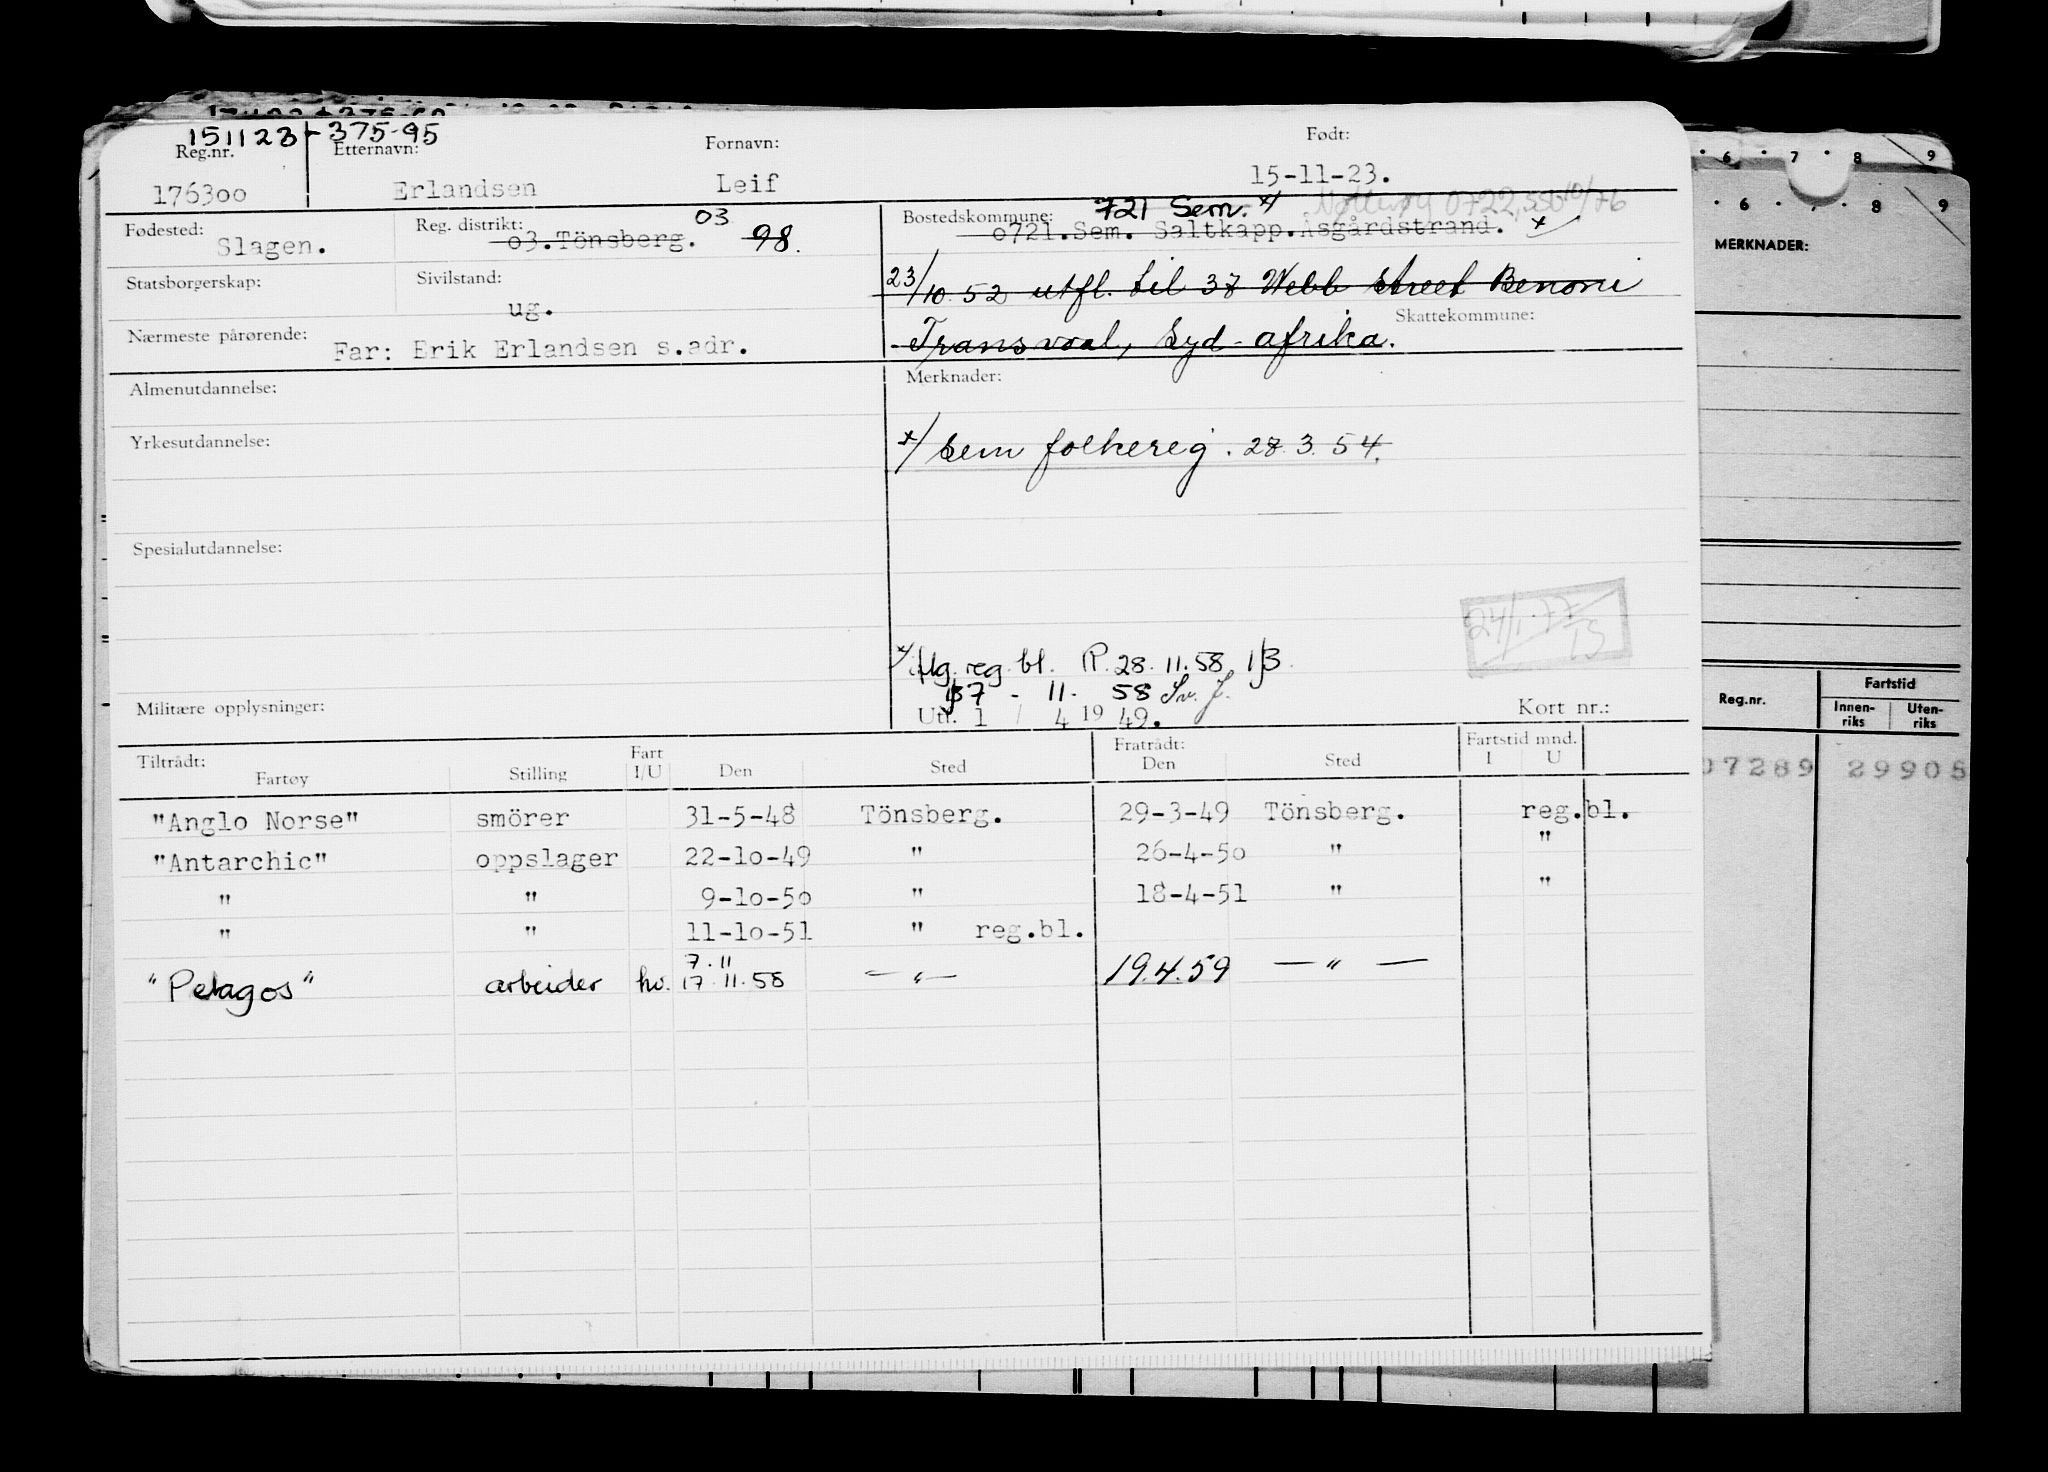 151123 - 375-95
Reg.nr. Etternavn: Fornavn: Født:
176300 Erlandsen Leif 15-11-23.
Fødested: Reg. distrikt: 03 Bostedskommune: 721 Sem. x/ Nøtterøy 0722, 10/76
Slagen. 03.Tönsberg. 98. 0721.Sem. Saltkapp.Åsgårdstrand. x
Statsborgerskap: Sivilstand: 23/10 52 utfl. til 37 Webb street Benoni
ug. Skattekommune:
Nærmeste pårørende: Far: Erik Erlandsen s.adr. Transvaal, Syd-afrika.
Almenutdannelse: Merknader:
Yrkesutdannelse: x/ Sem folkereg. 28.3.54.
Spesialutdannelse:
24/1.77
flg. reg. bl. P. 28.11.58
7 - 11 - 58
Militære opplysninger: Utf. 1 / 4 19 49. Kort nr.:
Tiltrådt: Fart Fratrådt: Fartstid mnd.
Fartøy Stilling I/U Den Sted Den Sted I U
"Anglo Norse" smörer 31-5-48 Tönsberg. 29-3-49 Tönsberg. reg.bl.
"Antarchic" oppslager 22-10-49 " 26-4-50 " "
" " 9-10-50 " 18-4-51 " "
" " 11-10-51 " reg.bl.
7.11
"Pelagos" arbeider hv. 17.11.58 — " — 19.4.59 — " —
6 7 8 9
6 7 8 9
MERKNADER:
Reg.nr. Fartstid
Innen-riks Uten-riks
07289 29905